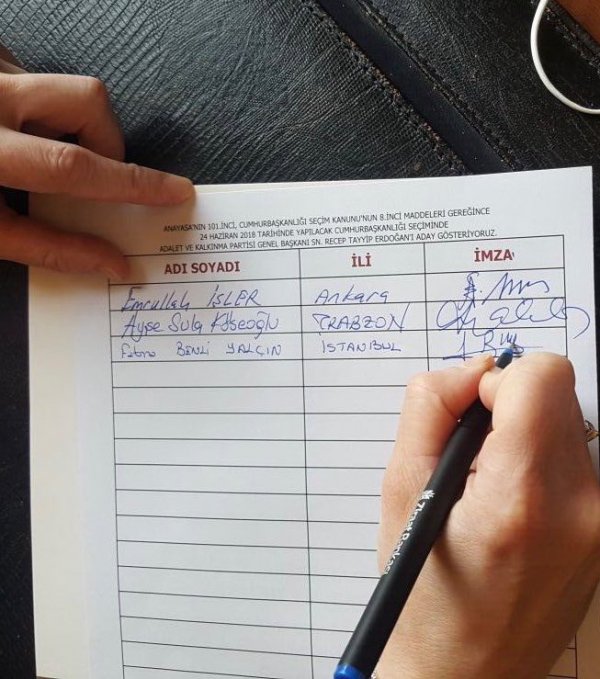 ANAYASA'NIN 101.İNCİ, CUMHURBAŞKANLIĞI SEÇİM KANUNU'NUN 8.İNCİ MADDELERİ GEREĞİNCE
24 HAZİRAN 2018 TARİHİNDE YAPILACAK CUMHURBAŞKANLIĞI SEÇİMİNDE
ADALET VE KALKINMA PARTİSİ GENEL BAŞKANI SN. RECEP TAYYİP ERDOĞAN'I ADAY GÖSTERİYORUZ.
ADI SOYADI İLİ İMZA
Emrullah İŞLER Ankara
Ayşe Sula Köseoğlu TRABZON
Fatma BENLİ YALÇIN İSTANBUL
Ziraat Bankası